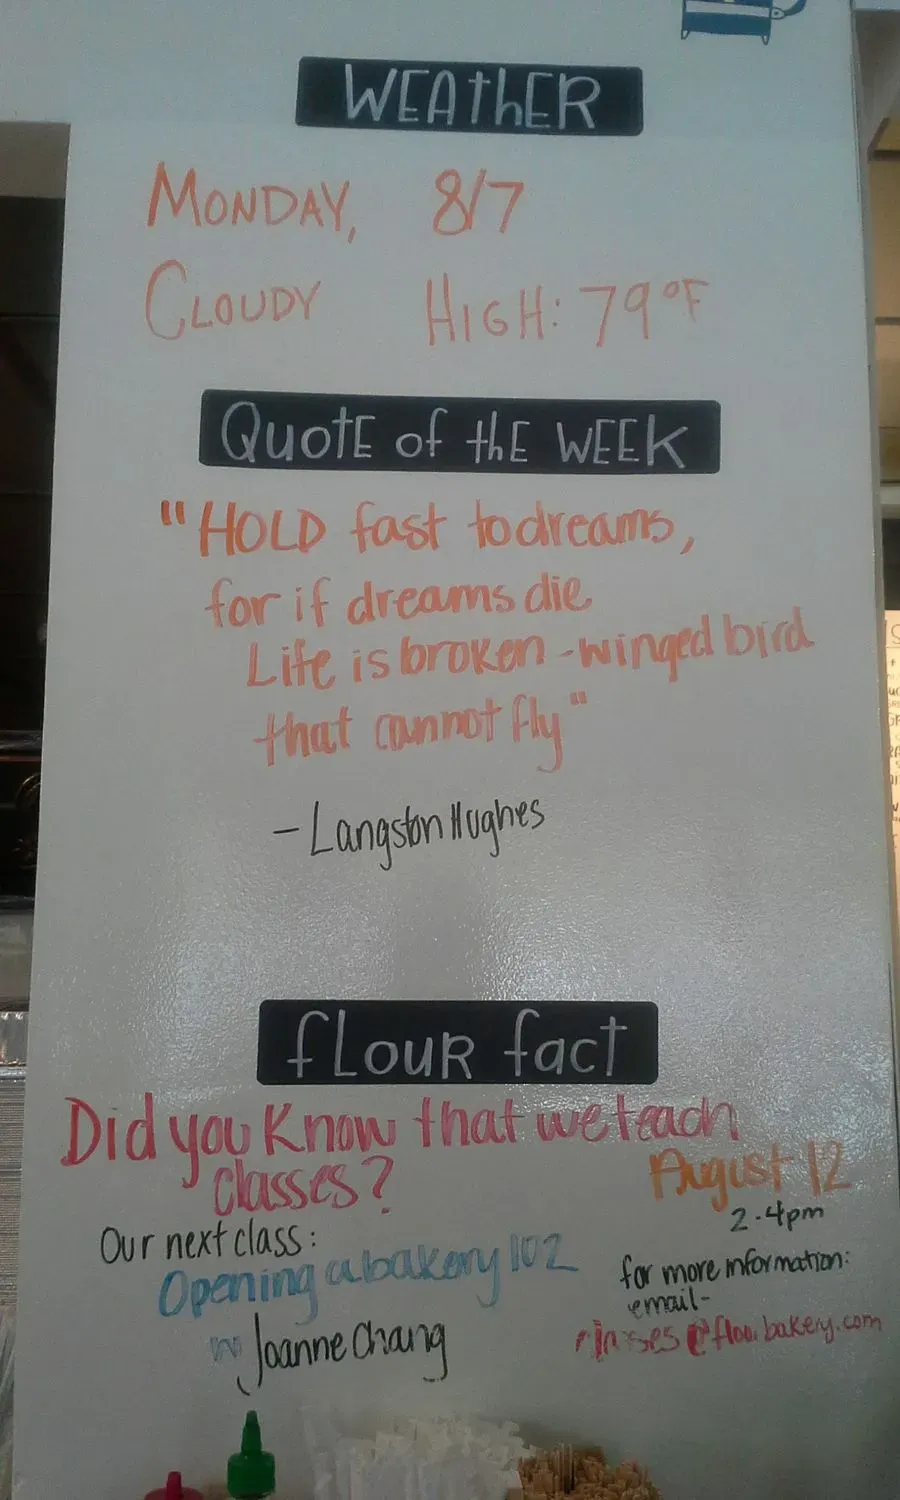 WEATHER
MONDAY, 8/7
CLOUDY HIGH: 79°F
QUOTE of thE WEEK
"HOLD fast to dreams,
for if dreams die
Life is broken-winged bird
that cannot fly"
- Langston Hughes
fLOUR fact
Did you Know that we teach
classes?
August 12
2-4pm
Our next class:
Opening a bakery 102
w/ Joanne Chang
for more information:
email-